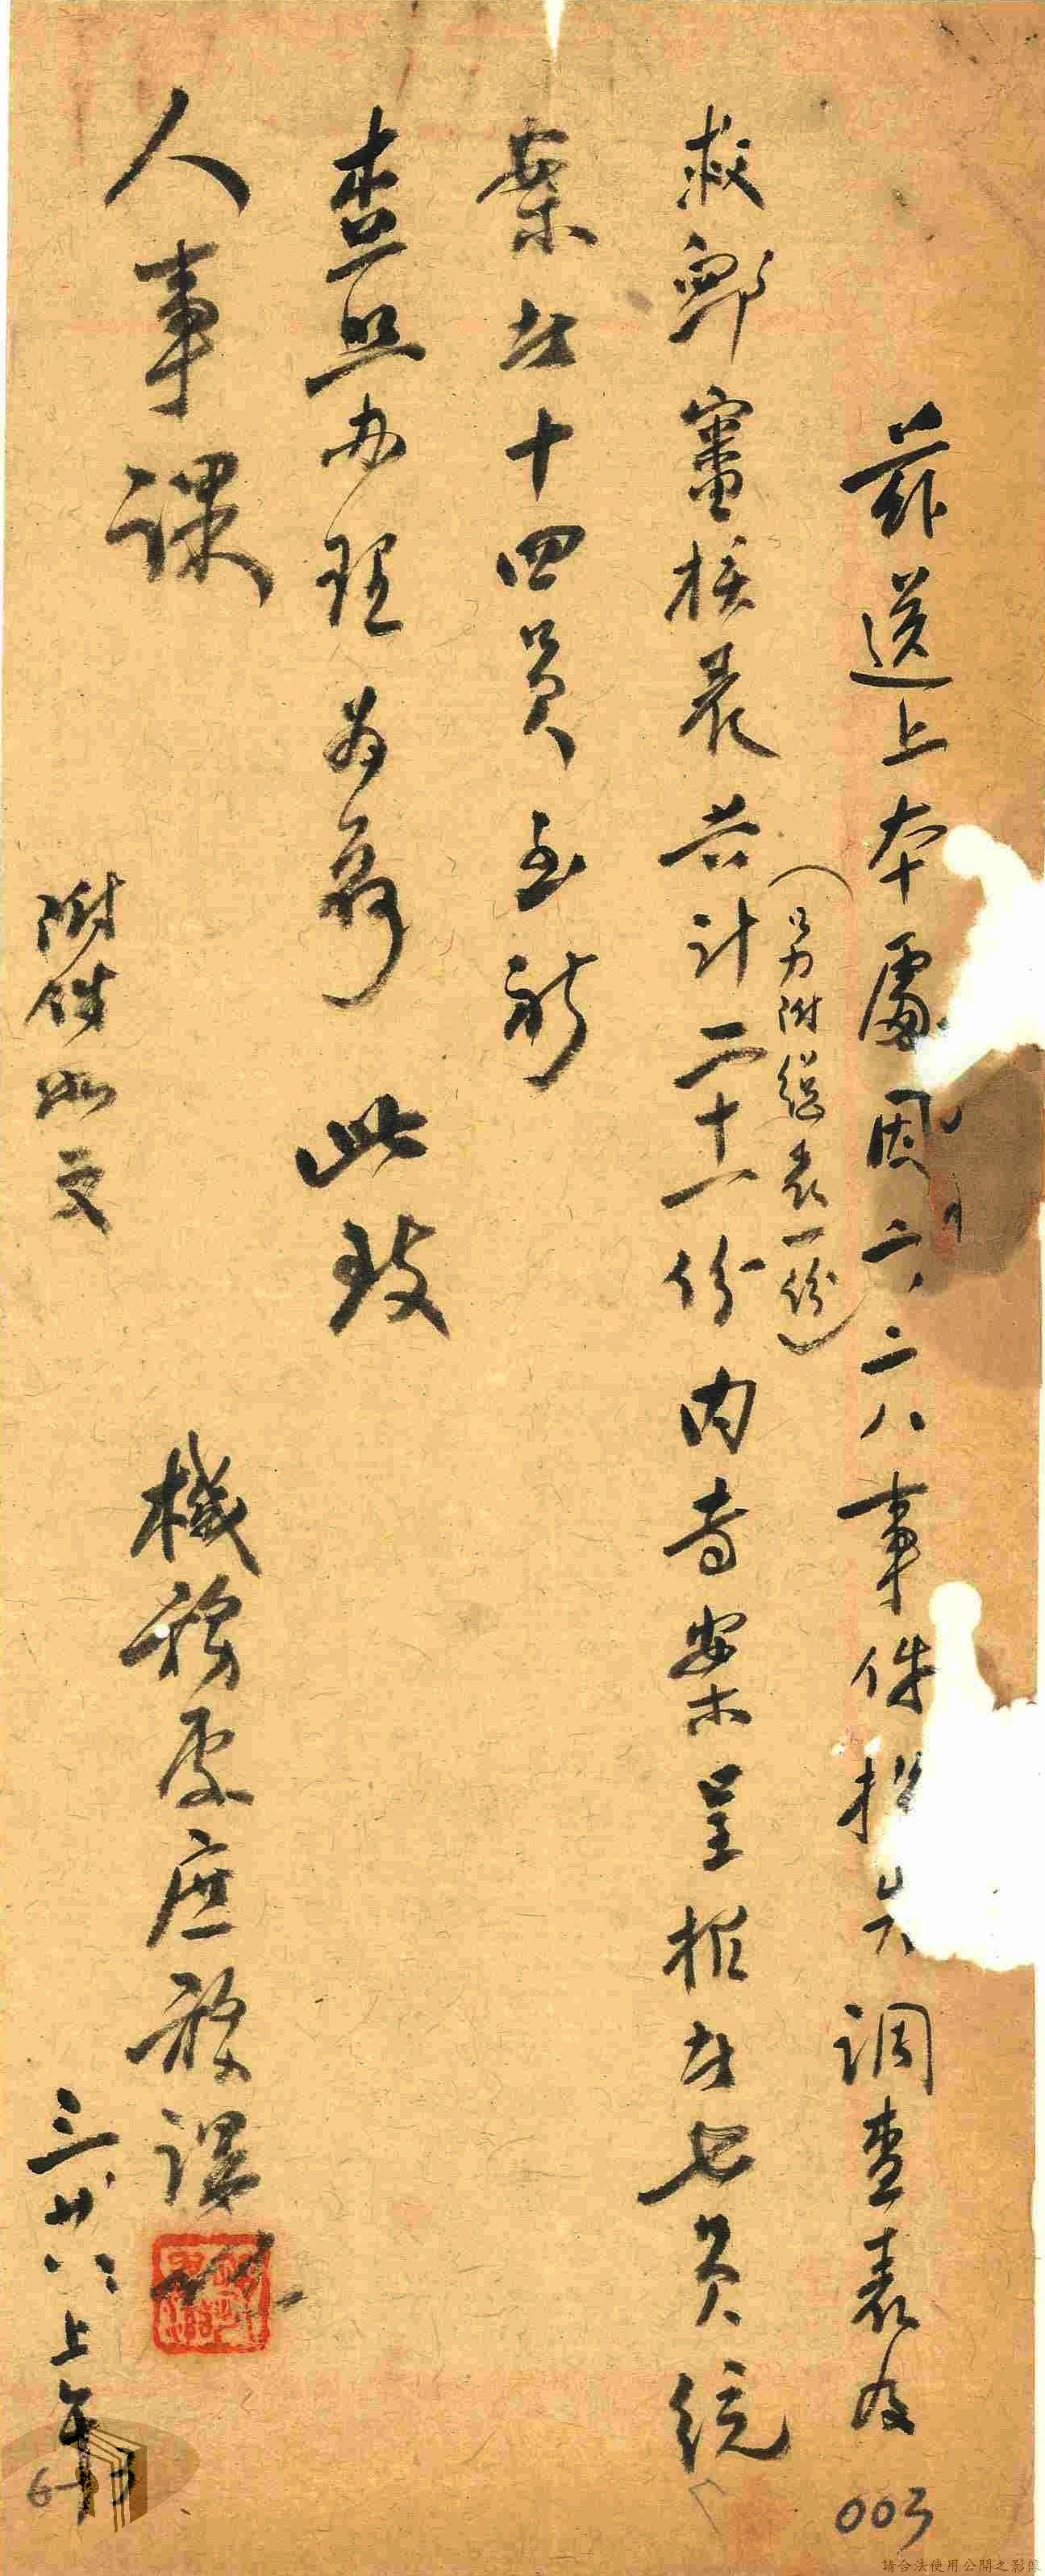 茲送上本處因六二八事件損失調查表及
(另附總表一份)
救卹審核表共計二十一份內當案呈報者七員統
案者十四員至祈
查照办理為荷 此致
人事課
機務處庶務課
附件如文
三廿八上午
6-3
003
請合法使用公開之影像